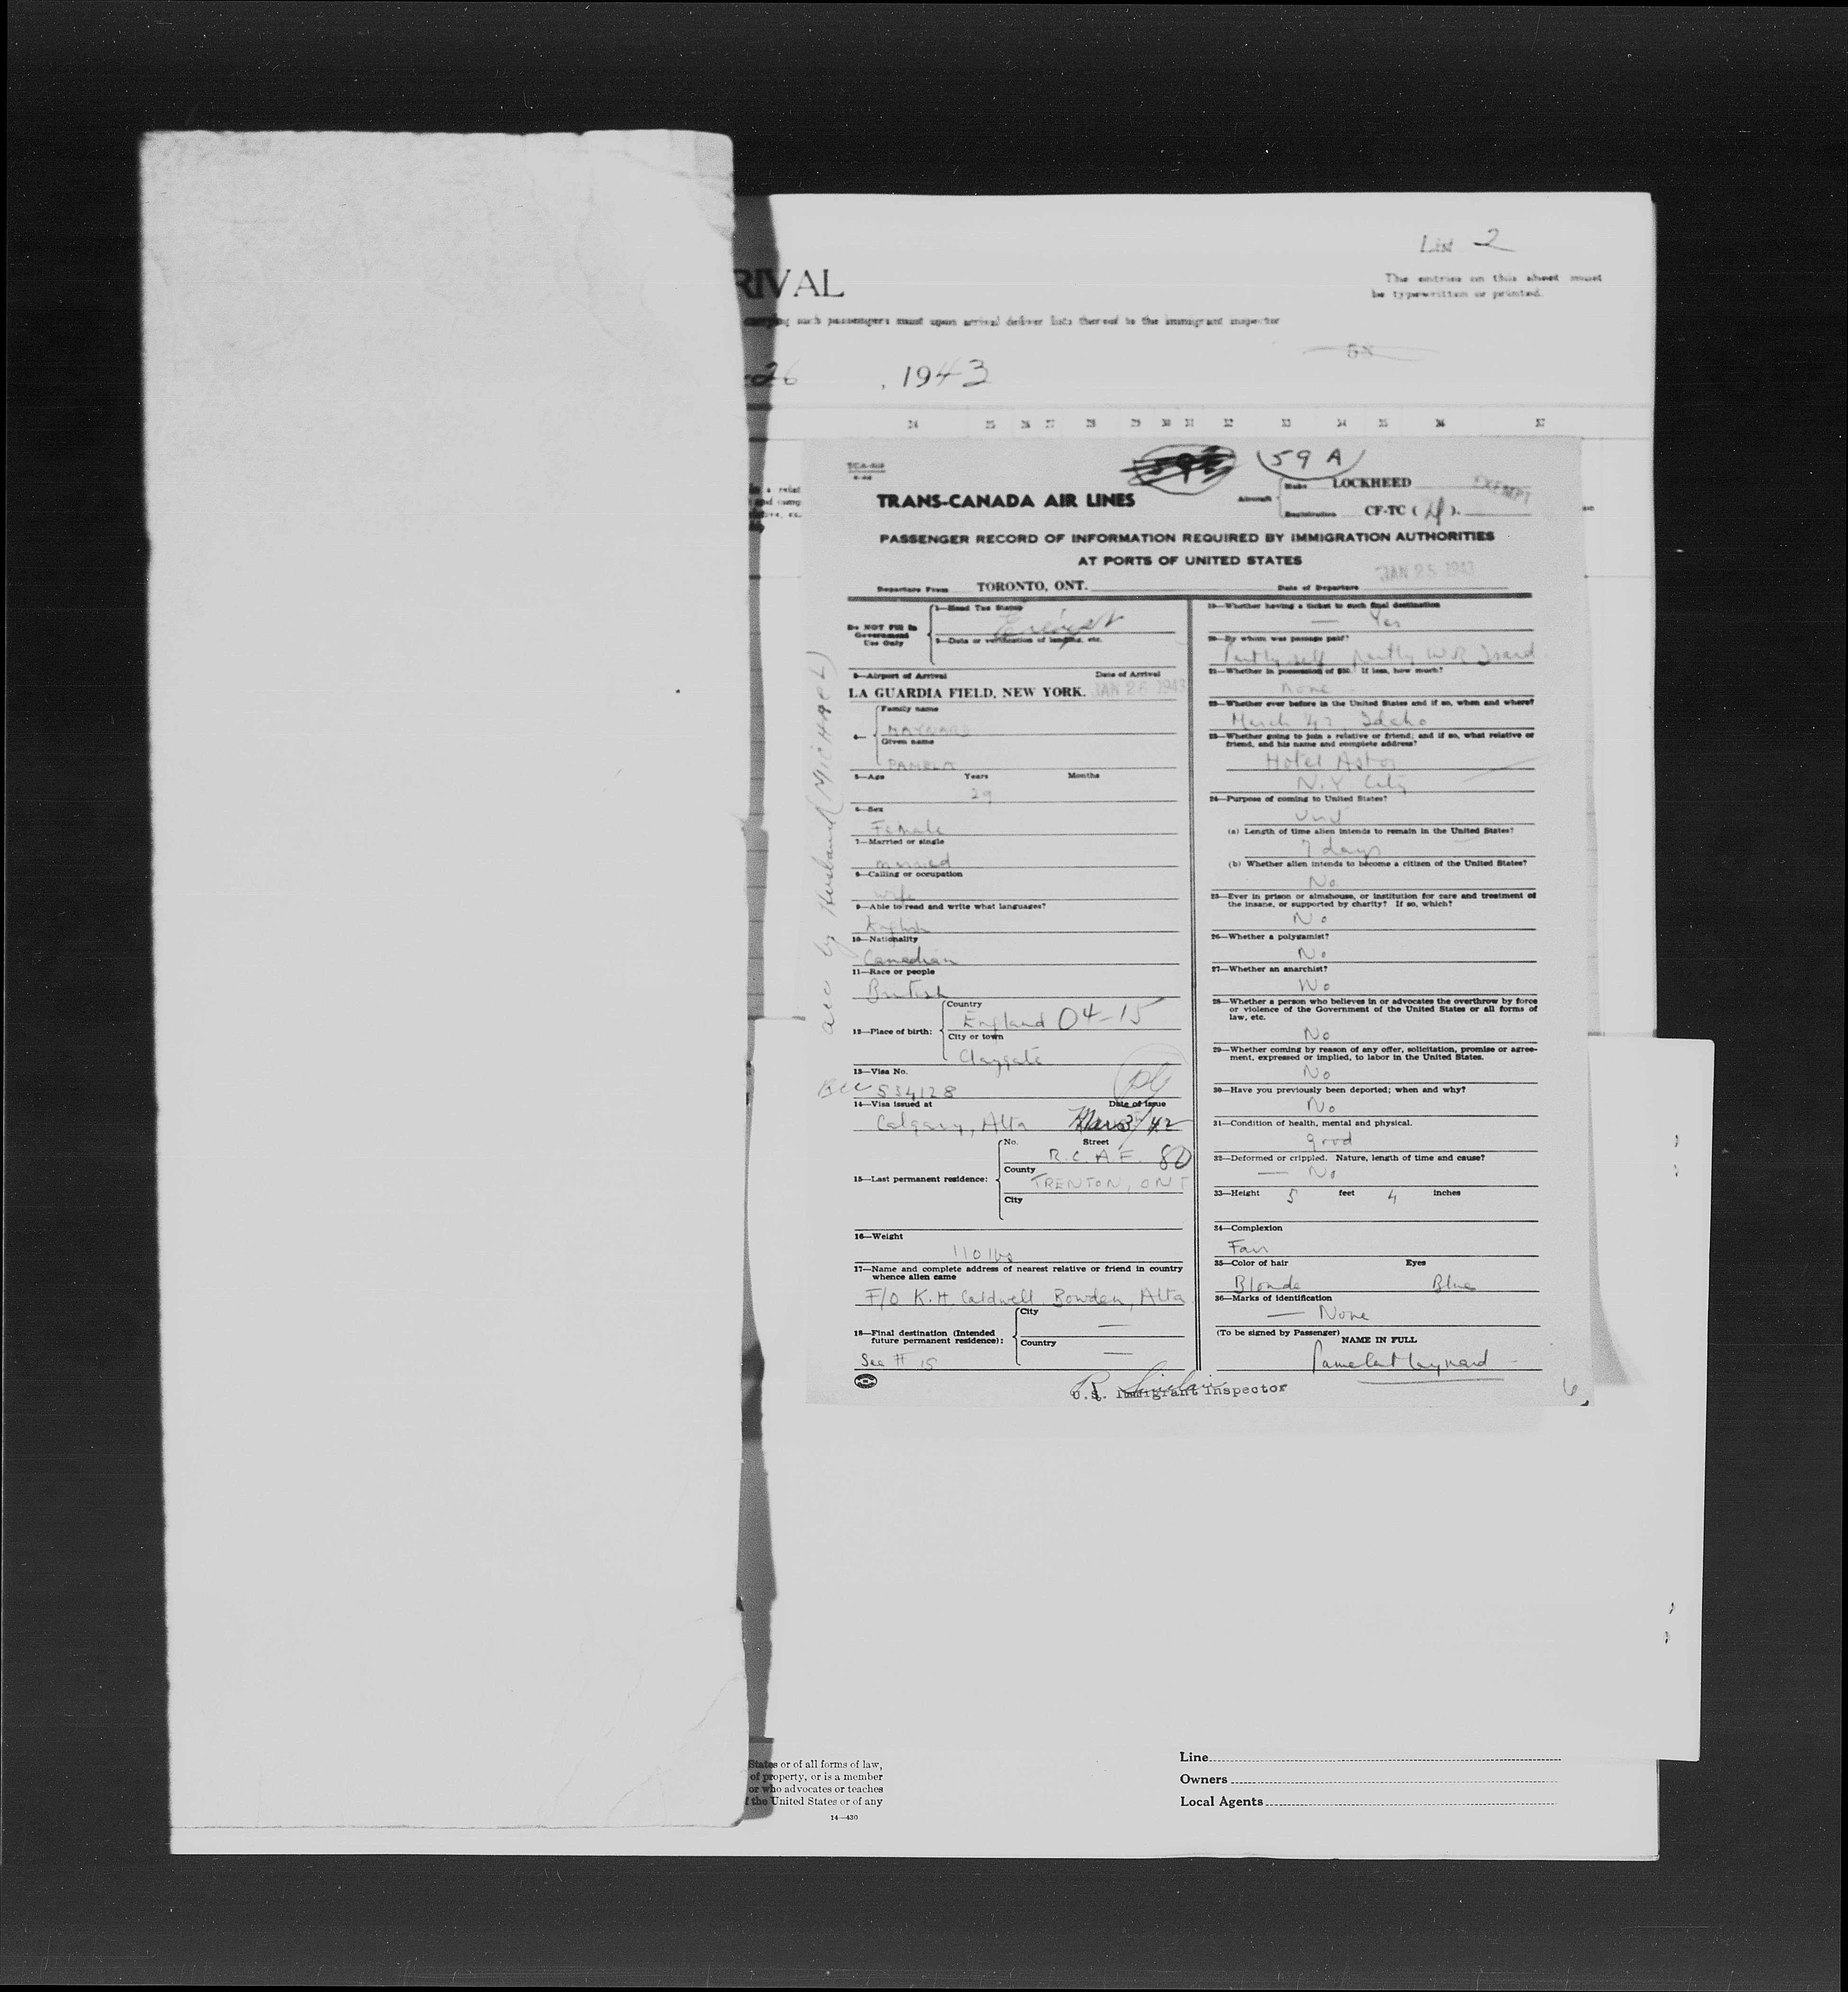 List 2
RIVAL
The entries on this sheet must
be typewritten or printed.
carrying such passengers must upon arrival deliver lists thereof to the immigrant inspector
5x
26 , 1943
24 25 26 27 28 29 30 31 32 33 34 35 36 37
59 A
TRANS-CANADA AIR LINES
Aircraft
Make LOCKHEED
EXEMPT
Registration CF-TC ( H ).
PASSENGER RECORD OF INFORMATION REQUIRED BY IMMIGRATION AUTHORITIES
AT PORTS OF UNITED STATES
Departure From TORONTO, ONT.
Date of Departure JAN 25 1943
Do NOT Fill in
Government
Use Only
1—Head Tax Status
Exempt
2—Data or verification of landing, etc.
3—Airport of Arrival Date of Arrival
LA GUARDIA FIELD, NEW YORK. JAN 26 1943
4—
Family name
MAYNARD
Given name
PAMELA
5—Age Years Months
29
6—Sex
Female
7—Married or single
married
8—Calling or occupation
wife
9—Able to read and write what languages?
English
10—Nationality
Canadian
11—Race or people
British
12—Place of birth:
Country
England 04-15
City or town
Claygate
13—Visa No.
BCC 534128
14—Visa issued at Date of Issue
Calgary, Alta Mar 3/42
15—Last permanent residence:
No. Street
R.C.A.F. 80
County
TRENTON, ONT
City
16—Weight
110 lbs
17—Name and complete address of nearest relative or friend in country
whence alien came
F/O K.H. Caldwell, Bowden, Alta.
18—Final destination (Intended
future permanent residence):
City
—
Country
—
See # 15
acc by Husband (MICHAEL)
19—Whether having a ticket to such final destination
— Yes
20—By whom was passage paid?
Partly self partly W R Isard
21—Whether in possession of $50. If less, how much?
None
22—Whether ever before in the United States and if so, when and where?
March 42, Idaho
23—Whether going to join a relative or friend; and if so, what relative or
friend, and his name and complete address?
Hotel Astor
N.Y. City
24—Purpose of coming to United States?
Visit
(a) Length of time alien intends to remain in the United States?
7 days
(b) Whether alien intends to become a citizen of the United States?
No
25—Ever in prison or almshouse, or institution for care and treatment of
the insane, or supported by charity? If so, which?
No
26—Whether a polygamist?
No
27—Whether an anarchist?
No
28—Whether a person who believes in or advocates the overthrow by force
or violence of the Government of the United States or all forms of
law, etc.
No
29—Whether coming by reason of any offer, solicitation, promise or agree-
ment, expressed or implied, to labor in the United States.
No
30—Have you previously been deported; when and why?
No
31—Condition of health, mental and physical.
good
32—Deformed or crippled. Nature, length of time and cause?
— No
33—Height 5 feet 4 inches
34—Complexion
Fair
35—Color of hair Eyes
Blonde Blue
36—Marks of identification
— None
(To be signed by Passenger)
NAME IN FULL
Pamela Maynard
R. Sinclair
U.S. Immigrant Inspector
6
States or of all forms of law,
of property, or is a member
or who advocates or teaches
the United States or of any
14—430
Line
Owners
Local Agents